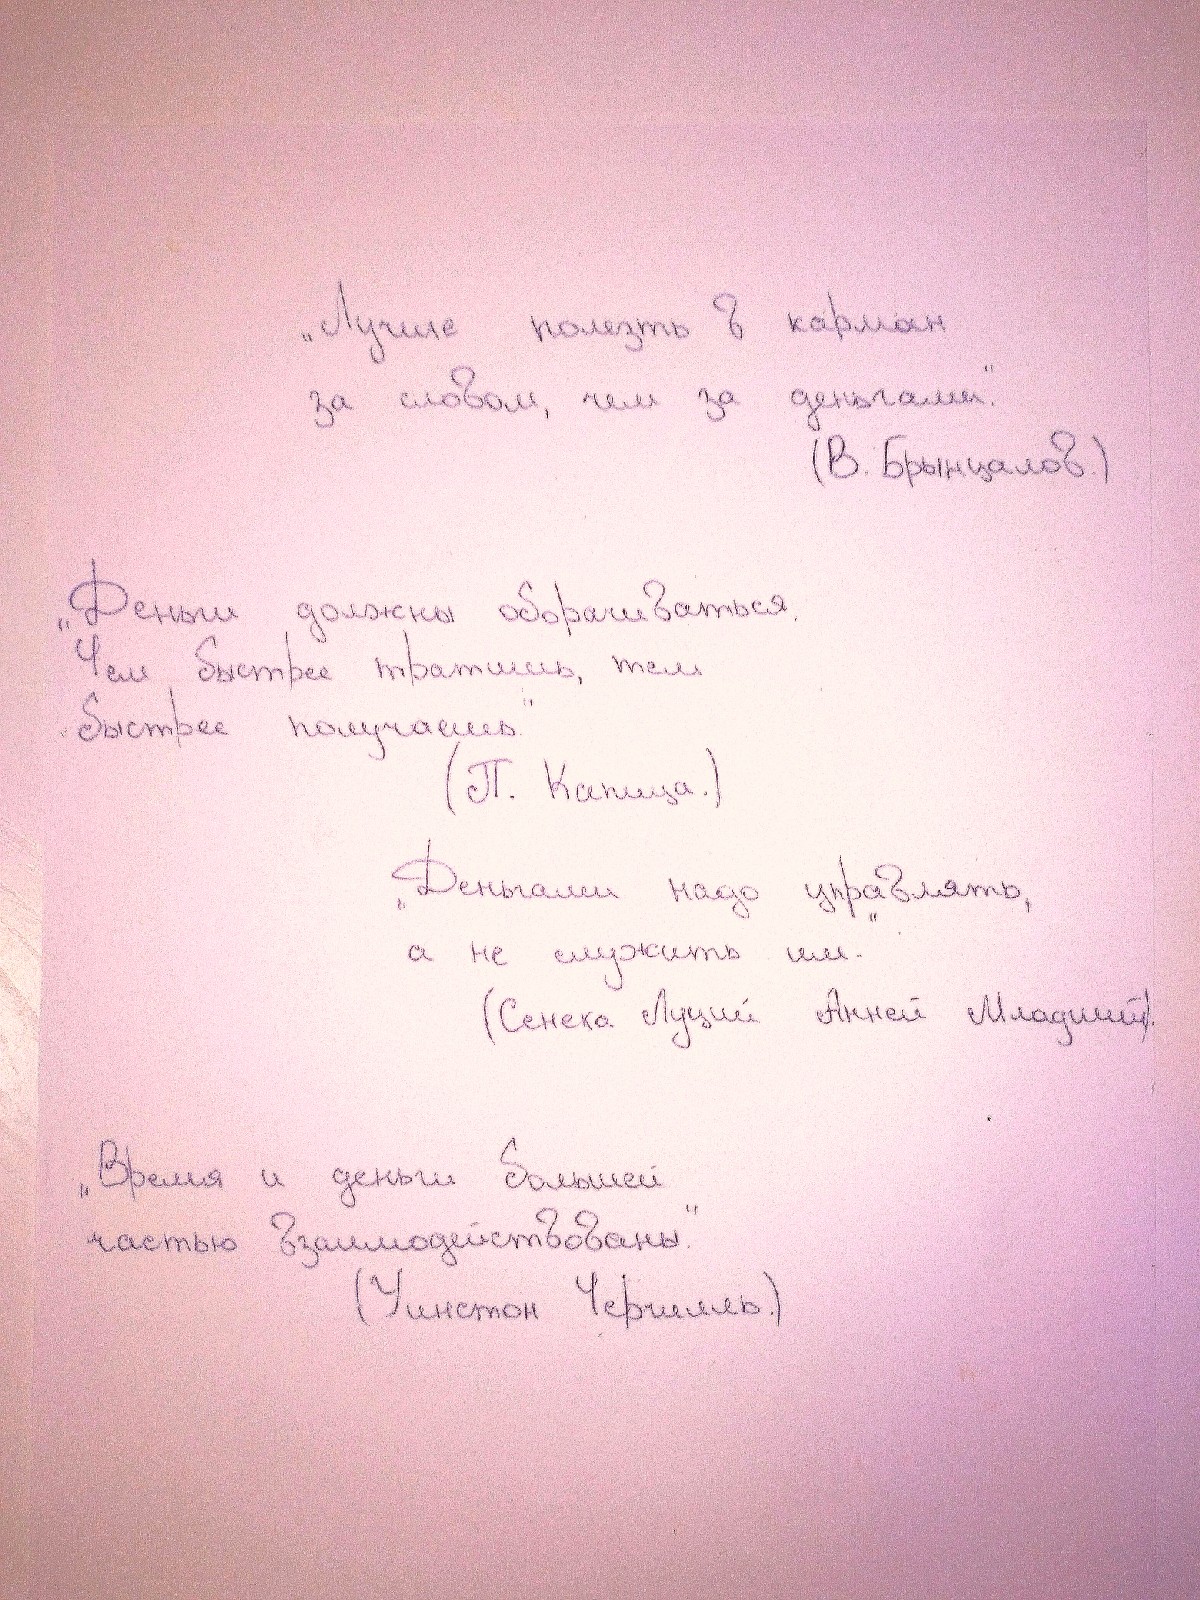 „Лучше полезть в карман
за словом, чем за деньгами".
(В. Брынцалов.)
„Деньги должны оборачиваться.
Чем быстрее тратишь, тем
быстрее получаешь."
(П. Капица.)
„Деньгами надо управлять,
а не служить им."
(Сенека Луций Анней Младший).
„Время и деньги большей
частью взаимодействованы."
(Уинстон Черчилль.)